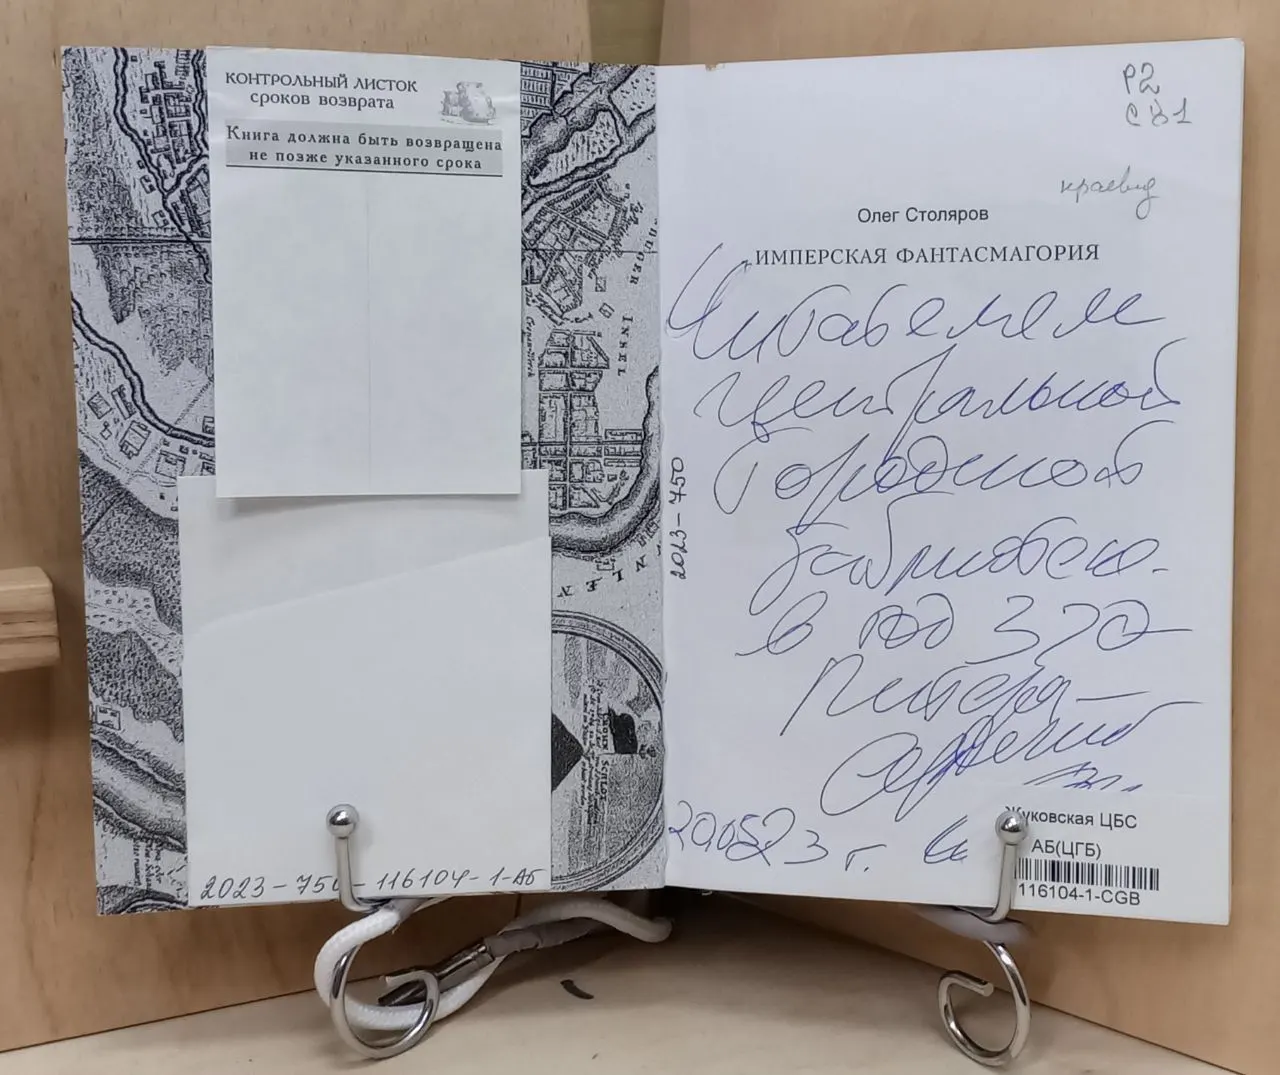 КОНТРОЛЬНЫЙ ЛИСТОК
сроков возврата
Книга должна быть возвращена
не позже указанного срока
2023-750-116104-1-АБ
Р2
С81
краевид
Олег Столяров
ИМПЕРСКАЯ ФАНТАСМАГОРИЯ
Читателям
Центральной
Городской
библиотеки
в год 320
Питера
2023-750
Жуковская ЦБС
АБ(ЦГБ)
116104-1-CGB
INSEL